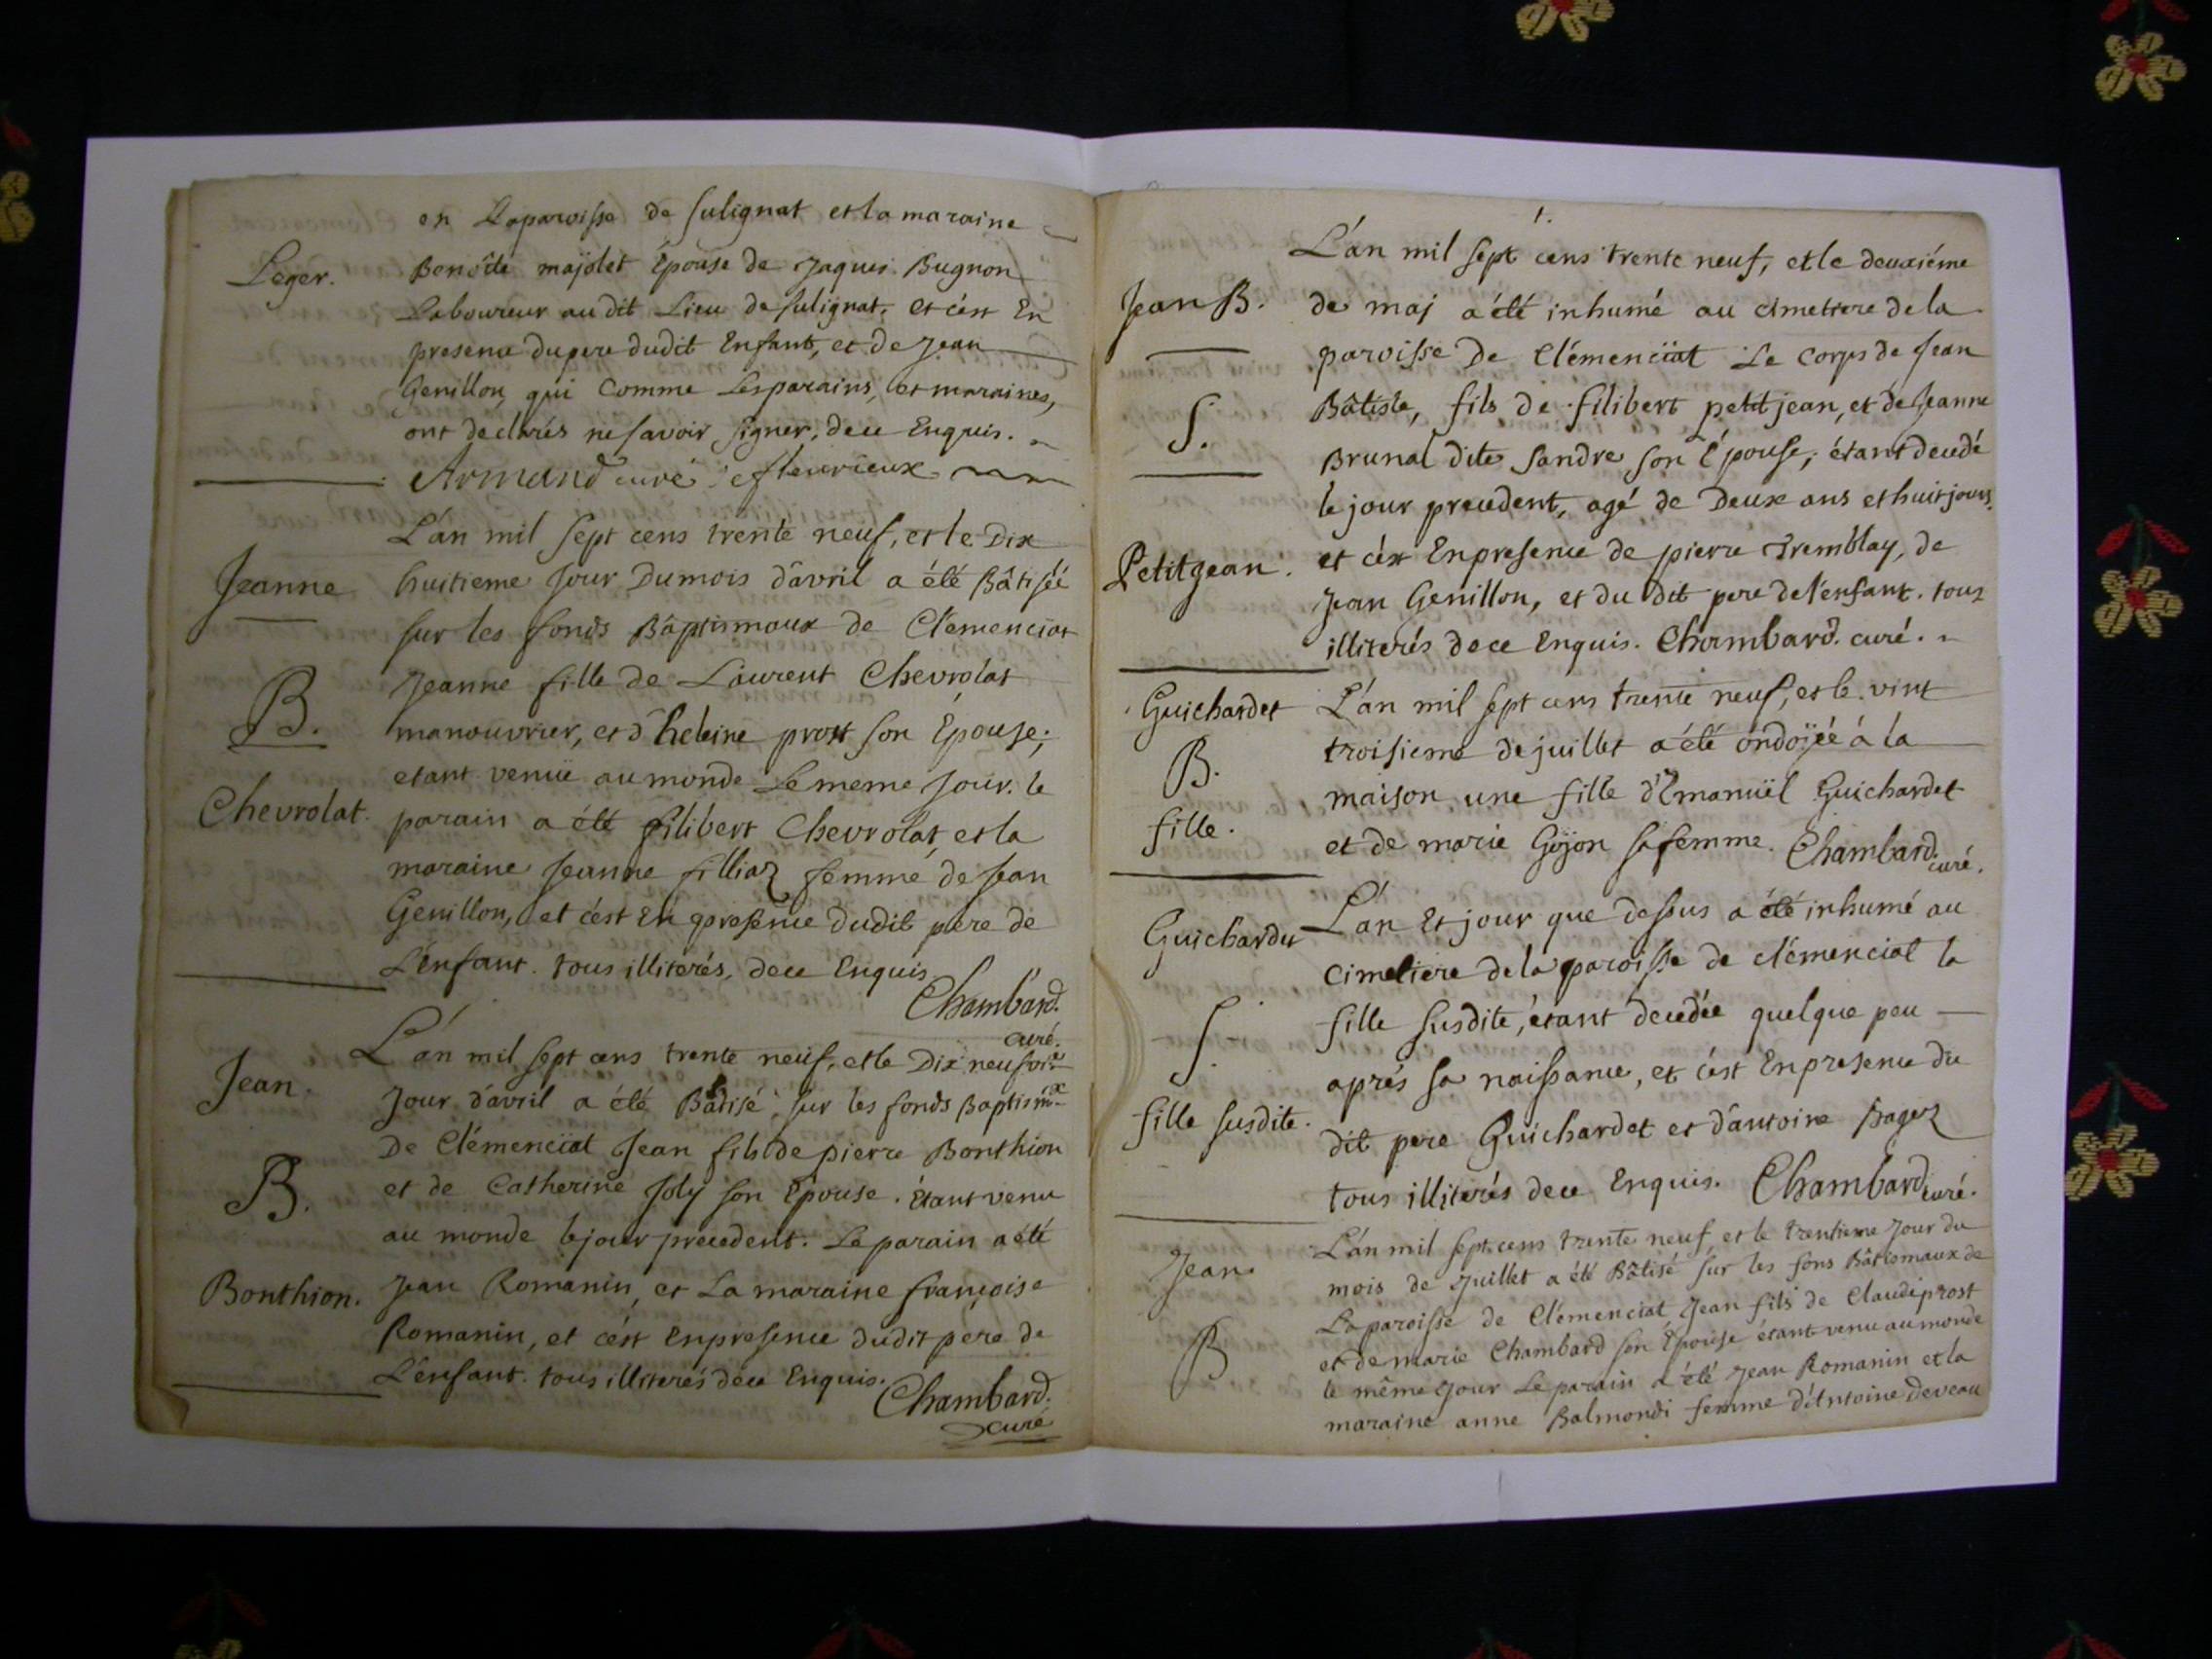 en Laparoisse de sulignat et la maraine
Leger.
Benoîte majolet Épouse de Jaques Bugnon
Laboureur au dit Lieu de sulignat, et c'est En
presence du pere dudit Enfant, et de Jean
Genillon, qui Comme Les parains, et maraines,
ont declarés ne savoir signer, de ce Enquis.
Armand curé
L'an mil sept cens trente neuf, et le Dix
Jeanne
huitieme Jour Du mois d'avril a été Bâtisée
sur les fonds Baptismaux de Clemenciat
B.
Jeanne fille de Laurent Chevrolat
manouvrier, et d'heleine prost son Épouse;
etant venüe au monde Le meme Jour. le
Chevrolat.
parain a été filibert Chevrolat, et la
maraine Jeanne filliaz femme de Jean
Genillon, et c'est En presence dudit pere de
L'enfant. tous illiterés, de ce Enquis
Chambard.
curé.
L'an mil sept cens trente neuf, et le Dix neufvie
Jean.
Jour d'avril a été Bâtisé sur les fonds Baptismx
De Clémenciat Jean fils de pierre Bonthion
B.
et de Catherine Joly son Épouse. Étant venu
au monde le jour precedent. Le parain a été
Bonthion.
Jean Romanin, et La maraine françoise
Romanin, et c'est En presence dudit pere de
L'enfant. tous illiterés de ce Enquis.
Chambard.
curé
1.
L'an mil sept cens trente neuf, et le deuxiéme
Jean B.
de maj a été inhumé au cimetiere de la
paroisse De Clémenciat Le Corps de Jean
S.
Bâtiste, fils de filibert petitjean, et de Jeanne
Brunal dite Sandre son Épouse, étant decedé
le jour precedent, agé de Deux ans et huit jours.
Petitgean.
et c'est En presence de pierre Tremblay, de
Jean Genillon, et du dit pere de l'enfant. tous
illiterés de ce Enquis. Chambard. curé.
Guichardet
L'an mil sept cens trente neuf, et le vint
troisieme de juillet a été ondoÿée á la
B.
maison une fille d'Emanüel Guichardet
fille.
et de marie Goÿon sa femme. Chambard curé.
L'an Et jour que dessus a été inhumé au
Guichardet
Cimetiere de la paroisse de clémenciat la
fille susdite, étant decedée quelque peu
S.
aprés sa naissance, et c'est En presence du
fille susdite.
dit pere Guichardet et d'antoine pagez
tous illiterés de ce Enquis. Chambard curé.
L'an mil sept cens trente neuf et le trentieme Jour du
Jean
mois de Juillet a été Bâtisé sur les fons Bâtismaux de
La paroisse de Clémenciat Jean fils de Claude prost
B
et de marie Chambard son Épouse étant venu au monde
le même Jour Le parain a été Jean Romanin et la
maraine anne Balmondi femme d'Antoine deveau